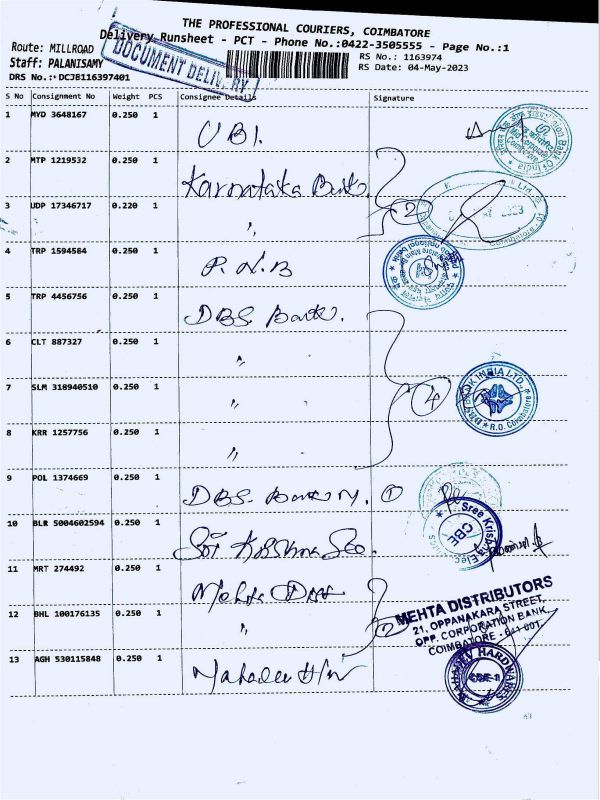 THE PROFESSIONAL COURIERS, COIMBATORE
Delivery Runsheet - PCT - Phone No.:0422-3505555 - Page No.:1
Route: MILLROAD
RS No.: 1163974
Staff: PALANISAMY
RS Date: 04-May-2023
DRS No.: DCJB116397401
DOCUMENT DELIVERY
S No Consignment No Weight PCS Consignee Details Signature
1 MYD 3648167 0.250 1 UBI.
2 MTP 1219532 0.250 1 Karnataka Bank
3 UDP 17346717 0.220 1 " 2
4 TRP 1594584 0.250 1 P.N.B
5 TRP 4456756 0.250 1 DBS Bank.
6 CLT 887327 0.250 1 "
7 SLM 318940510 0.250 1 " 4
8 KRR 1257756 0.250 1 "
9 POL 1374669 0.250 1 DBS Bank 1
10 BLR 5004602594 0.250 1 Sri Krishna
11 MRT 274492 0.250 1 Mehta
12 BHL 100176135 0.250 1 " 2
13 AGH 530115848 0.250 1 Mahadev H/W
Union Bank Of India
INDIA LTD.
R.O. Coimbatore
Sree Krishna Electricals
CBE
MEHTA DISTRIBUTORS
21, OPPANAKARA STREET,
OPP. CORPORATION BANK,
COIMBATORE - 641 001
MAHADEV HARDWARES
CBE-1